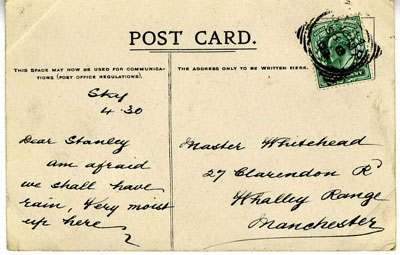 POST CARD.
THIS SPACE MAY NOW BE USED FOR COMMUNICA-
TIONS (POST OFFICE REGULATIONS).
Sky
4.30
Dear Stanley
am afraid
we shall have
rain, Very moist
up here
THE ADDRESS ONLY TO BE WRITTEN HERE.
Master Whitehead
27 Clarendon Rd
Whalley Range
Manchester